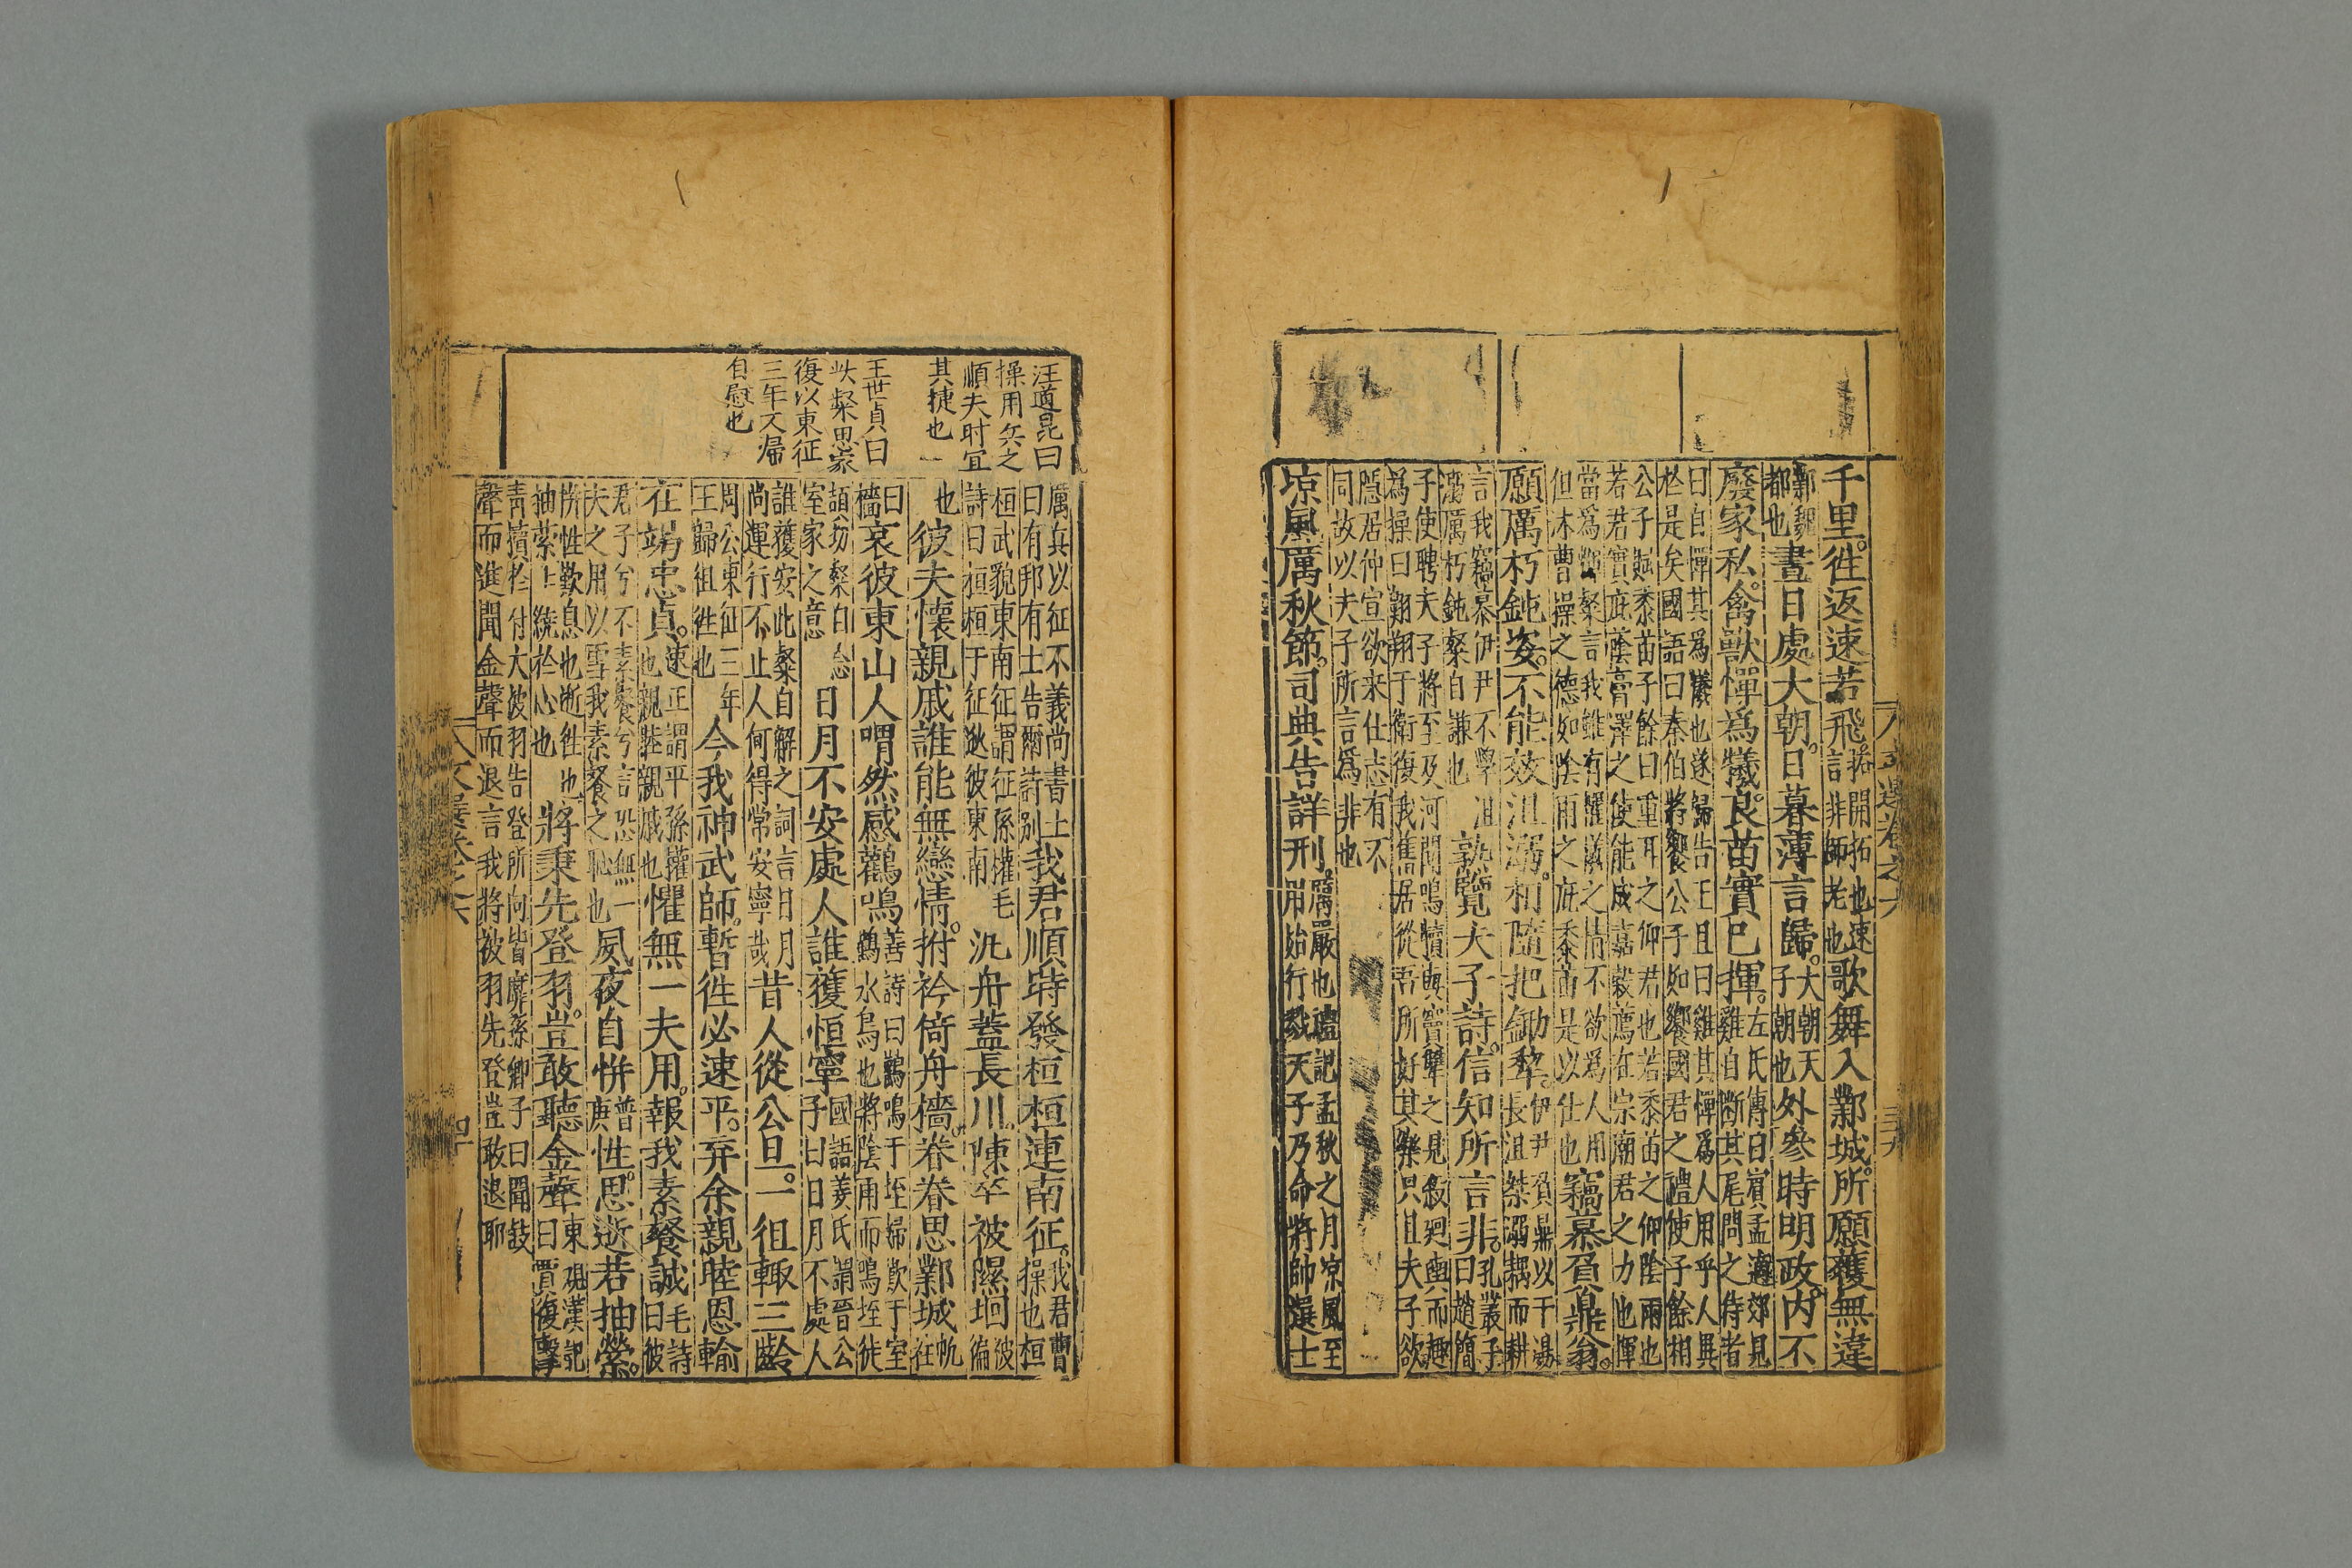 千里徃返速若飛。拓開拓也速言非師老也歌舞入鄴城。所願獲無違
鄴魏都也晝日處大朝。日暮薄言歸。大朝天子朝也外參時明政。内不
廢家私。禽獸憚爲犧。良苗實已揮。左氏傳曰賓孟適郊見雞自断其尾問之侍者
曰自憚其爲犧也遂歸告王且曰雞其憚爲人用乎人異於是矣國語曰秦伯將饗公子如饗國君之禮使子餘相
公子賦黍苗子餘曰重耳之仰君也若黍苗之仰陰雨也若君實庇蔭膏澤之使能成嘉穀薦在宗廟君之力也惲
當爲粲言我雖有犧之情不欲爲人用但沐曹操之德如陰雨之庇黍苗是以仕也竊慕負鼎翁。
願厲朽鈍姿。不能效沮溺。相隨把鋤犂。伊尹負鼎以干湯長沮桀溺耦而耕
言我竊慕伊尹不學沮溺厲朽鈍粲自謙也孰覽夫子詩。信知所言非。孔叢子曰趙簡
子使聘夫子將至及河聞鳴犢與竇犨之見殺廻輿而趣爲操曰翺翔于衛復我舊居從吾所好其樂只且夫子欲
隱居仲宣欲来仕志有不同故以夫子所言爲非也
凉風厲秋節。司典告詳刑。厲嚴也禮記孟秋之月凉風至用始行戮天子乃命將帥選士
汪道昆曰
操用兵之
順夫时宜
其捷也
王世貞曰
此粲思家
復以東征
三年不帰
自慰也
厲兵以征不義尚書上曰有邦有士告爾詩别我君順時發桓桓連南征。我君曹操也桓
桓武貌東南征謂征孫權毛詩曰桓桓于征逖彼東南汎舟蓋長川。陳卒被隰坰彼徧
也彼夫懷親戚誰能無戀情。拊衿倚舟檣。眷眷思鄴城帆柱
曰檣哀彼東山人喟然感鸛鳴善詩曰鸛鳴于垤婦歎于室鸛水鳥也將陰雨而鳴垤徙
頡坊粲自念室家之意日月不安處人誰獲恒寧國語姜氏謂晉公子曰日月不處人
誰獲安此粲自解之詞言日月尚運行不止人何得常安寧哉昔人從公旦。一徂輙三齡
周公東征三年王歸徂徃也今我神武師。暫徃必速平。弃余親睦恩輸
在竭忠貞。速正謂平孫權也親睦親戚也懼無一夫用。報我素餐誠毛詩曰彼
君子兮不素餐兮言恐無一夫之用以雪我素餐之恥也夙夜自恲普庚性。思逝若抽縈。
恲性歎息也逝徃也抽縈上繞於心也將秉先登羽。豈敢聽金聲東觀漢記曰賈復擊
青犢於付大彼羽告登所向皆靡孫卿子曰聞鼓聲而進聞金聲而退言我將被羽先登豈敢退耶